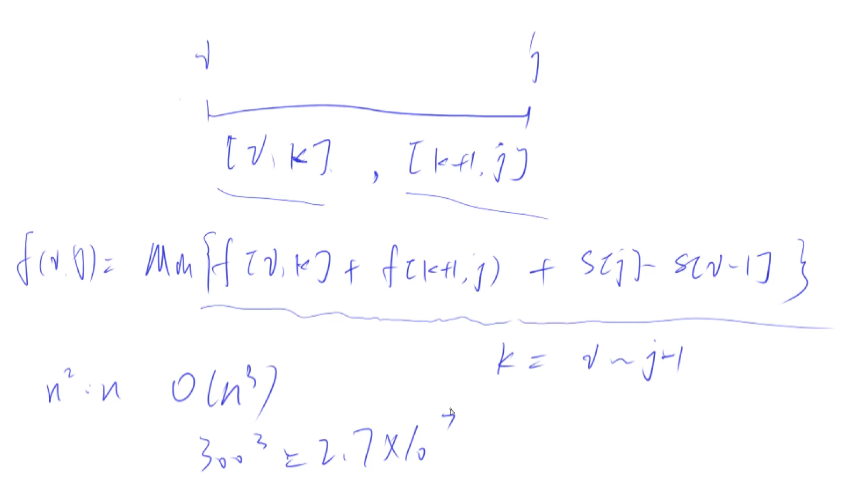 i j
[i, k] , [k+1, j]
f(i, j) = min { f[i, k] + f[k+1, j) + S[j] - S[i-1] }
k = i ~ j-1
n² · n O(n³)
300³ = 2.7 × 10⁷